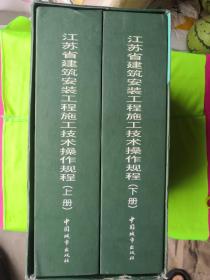 江苏省建筑安装工程施工技术操作规程
(上册)
中国城市出版社
江苏省建筑安装工程施工技术操作规程
(下册)
中国城市出版社